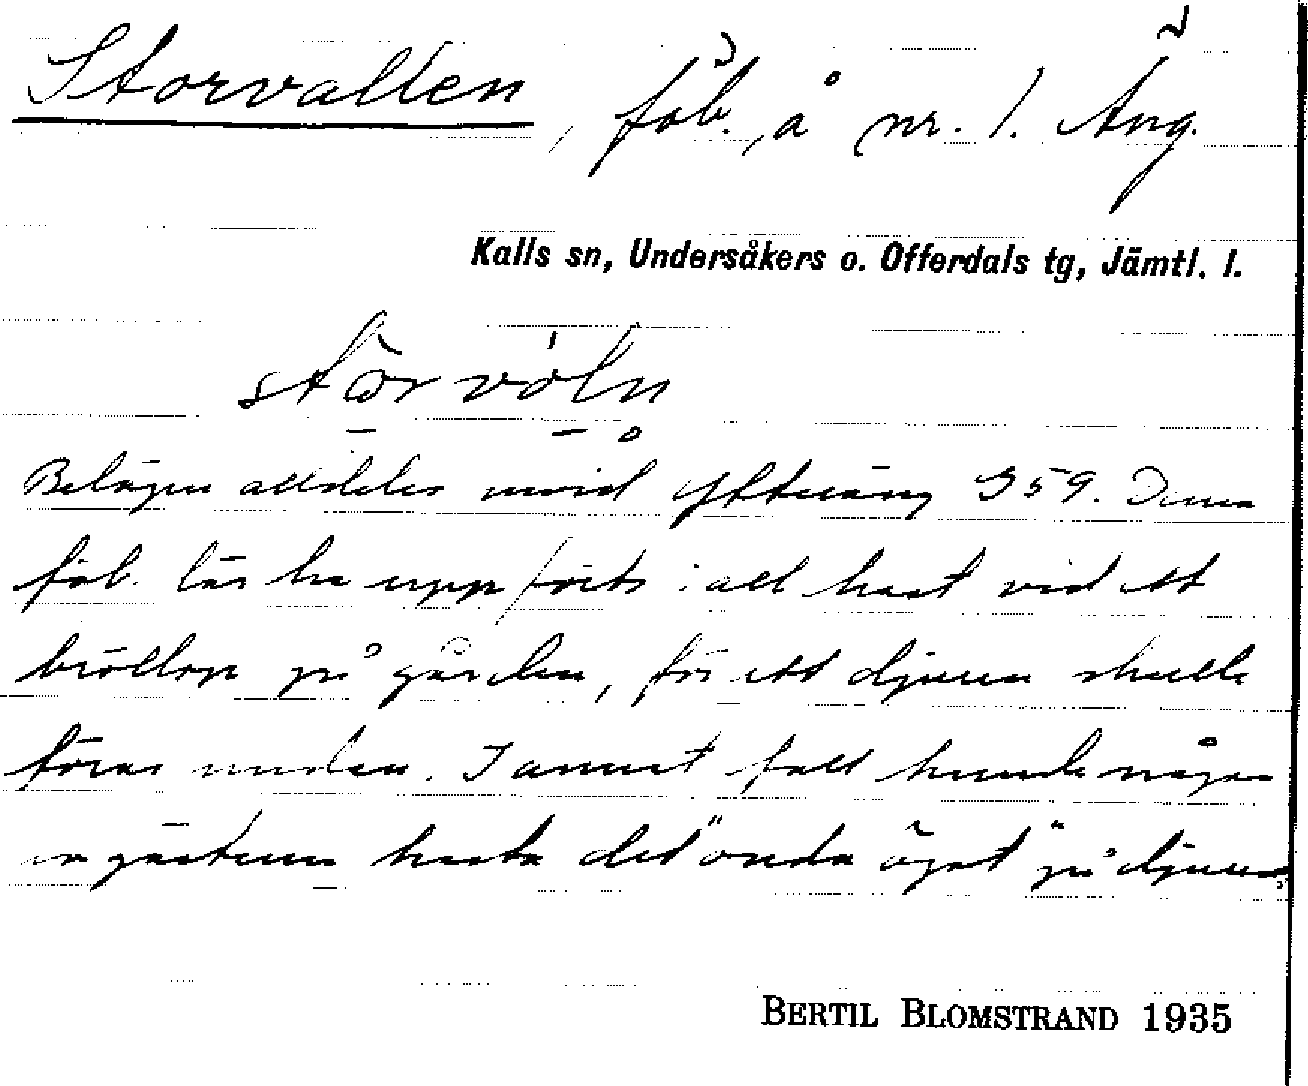 Storvallen, fäb. å nr. 1. Äng.
Kalls sn, Undersåkers o. Offerdals tg, Jämtl. l.
stor völn
Belägen alldeles invid 359. Denna
fäb. lär ha uppförts i all hast vid ett
bröllop på gården, för att djuren skulle
föras undan. I annat fall kunde någon
av gästerna kasta det "onda ögat" på djuren.
BERTIL BLOMSTRAND 1935